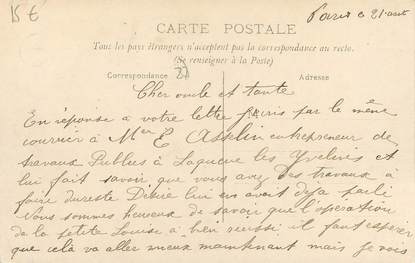 15 €
Paris ce 21 août
CARTE POSTALE
Tous les pays étrangers n'acceptent pas la correspondance au recto.
(Se renseigner à la Poste)
Correspondance
Adresse
Cher oncle et tante
En réponse a votre lettre j'écris par le même
courrier à Mr E Asselin entrepreneur de
travaux Publics à Laqueue les Yvelines et
lui fait savoir que vous avez des travaux à
faire dureste Désiré lui en avait déja parlé
Nous sommes heureux de savoir que l'opération
de la petite Louise a bien réussi il faut espérer
que celà va aller mieux maintenant mais je vois